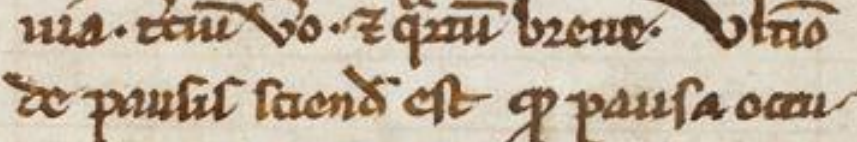 uia. tciũ ỏo. ⁊ q̃rtũ breue. Vltiō
de pausis sciend̃ est ꝙ pausa occu-